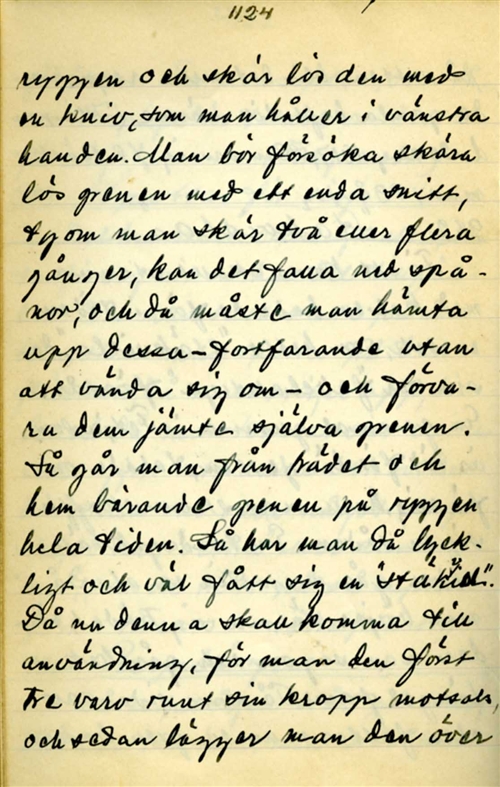 1124
ryggen och skär lös den med
en kniv, som man håller i vänstra
handen. Man bör försöka skära
lös grenen med ett enda snitt,
ty om man skär två eller flera
gånger, kan det falla ned spå-
nor, och då måste man hämta
upp dessa – fortfarande utan
att vända sig om – och förva-
ra dem jämte själva grenen.
Så går man från trädet och
hem bärande grenen på ryggen
hela tiden. Så har man då lyck-
ligt och väl fått sig en
Då nu denna skall komma till
användning, för man den först
tre varv runt sin kropp motsols,
och sedan lägger man den över